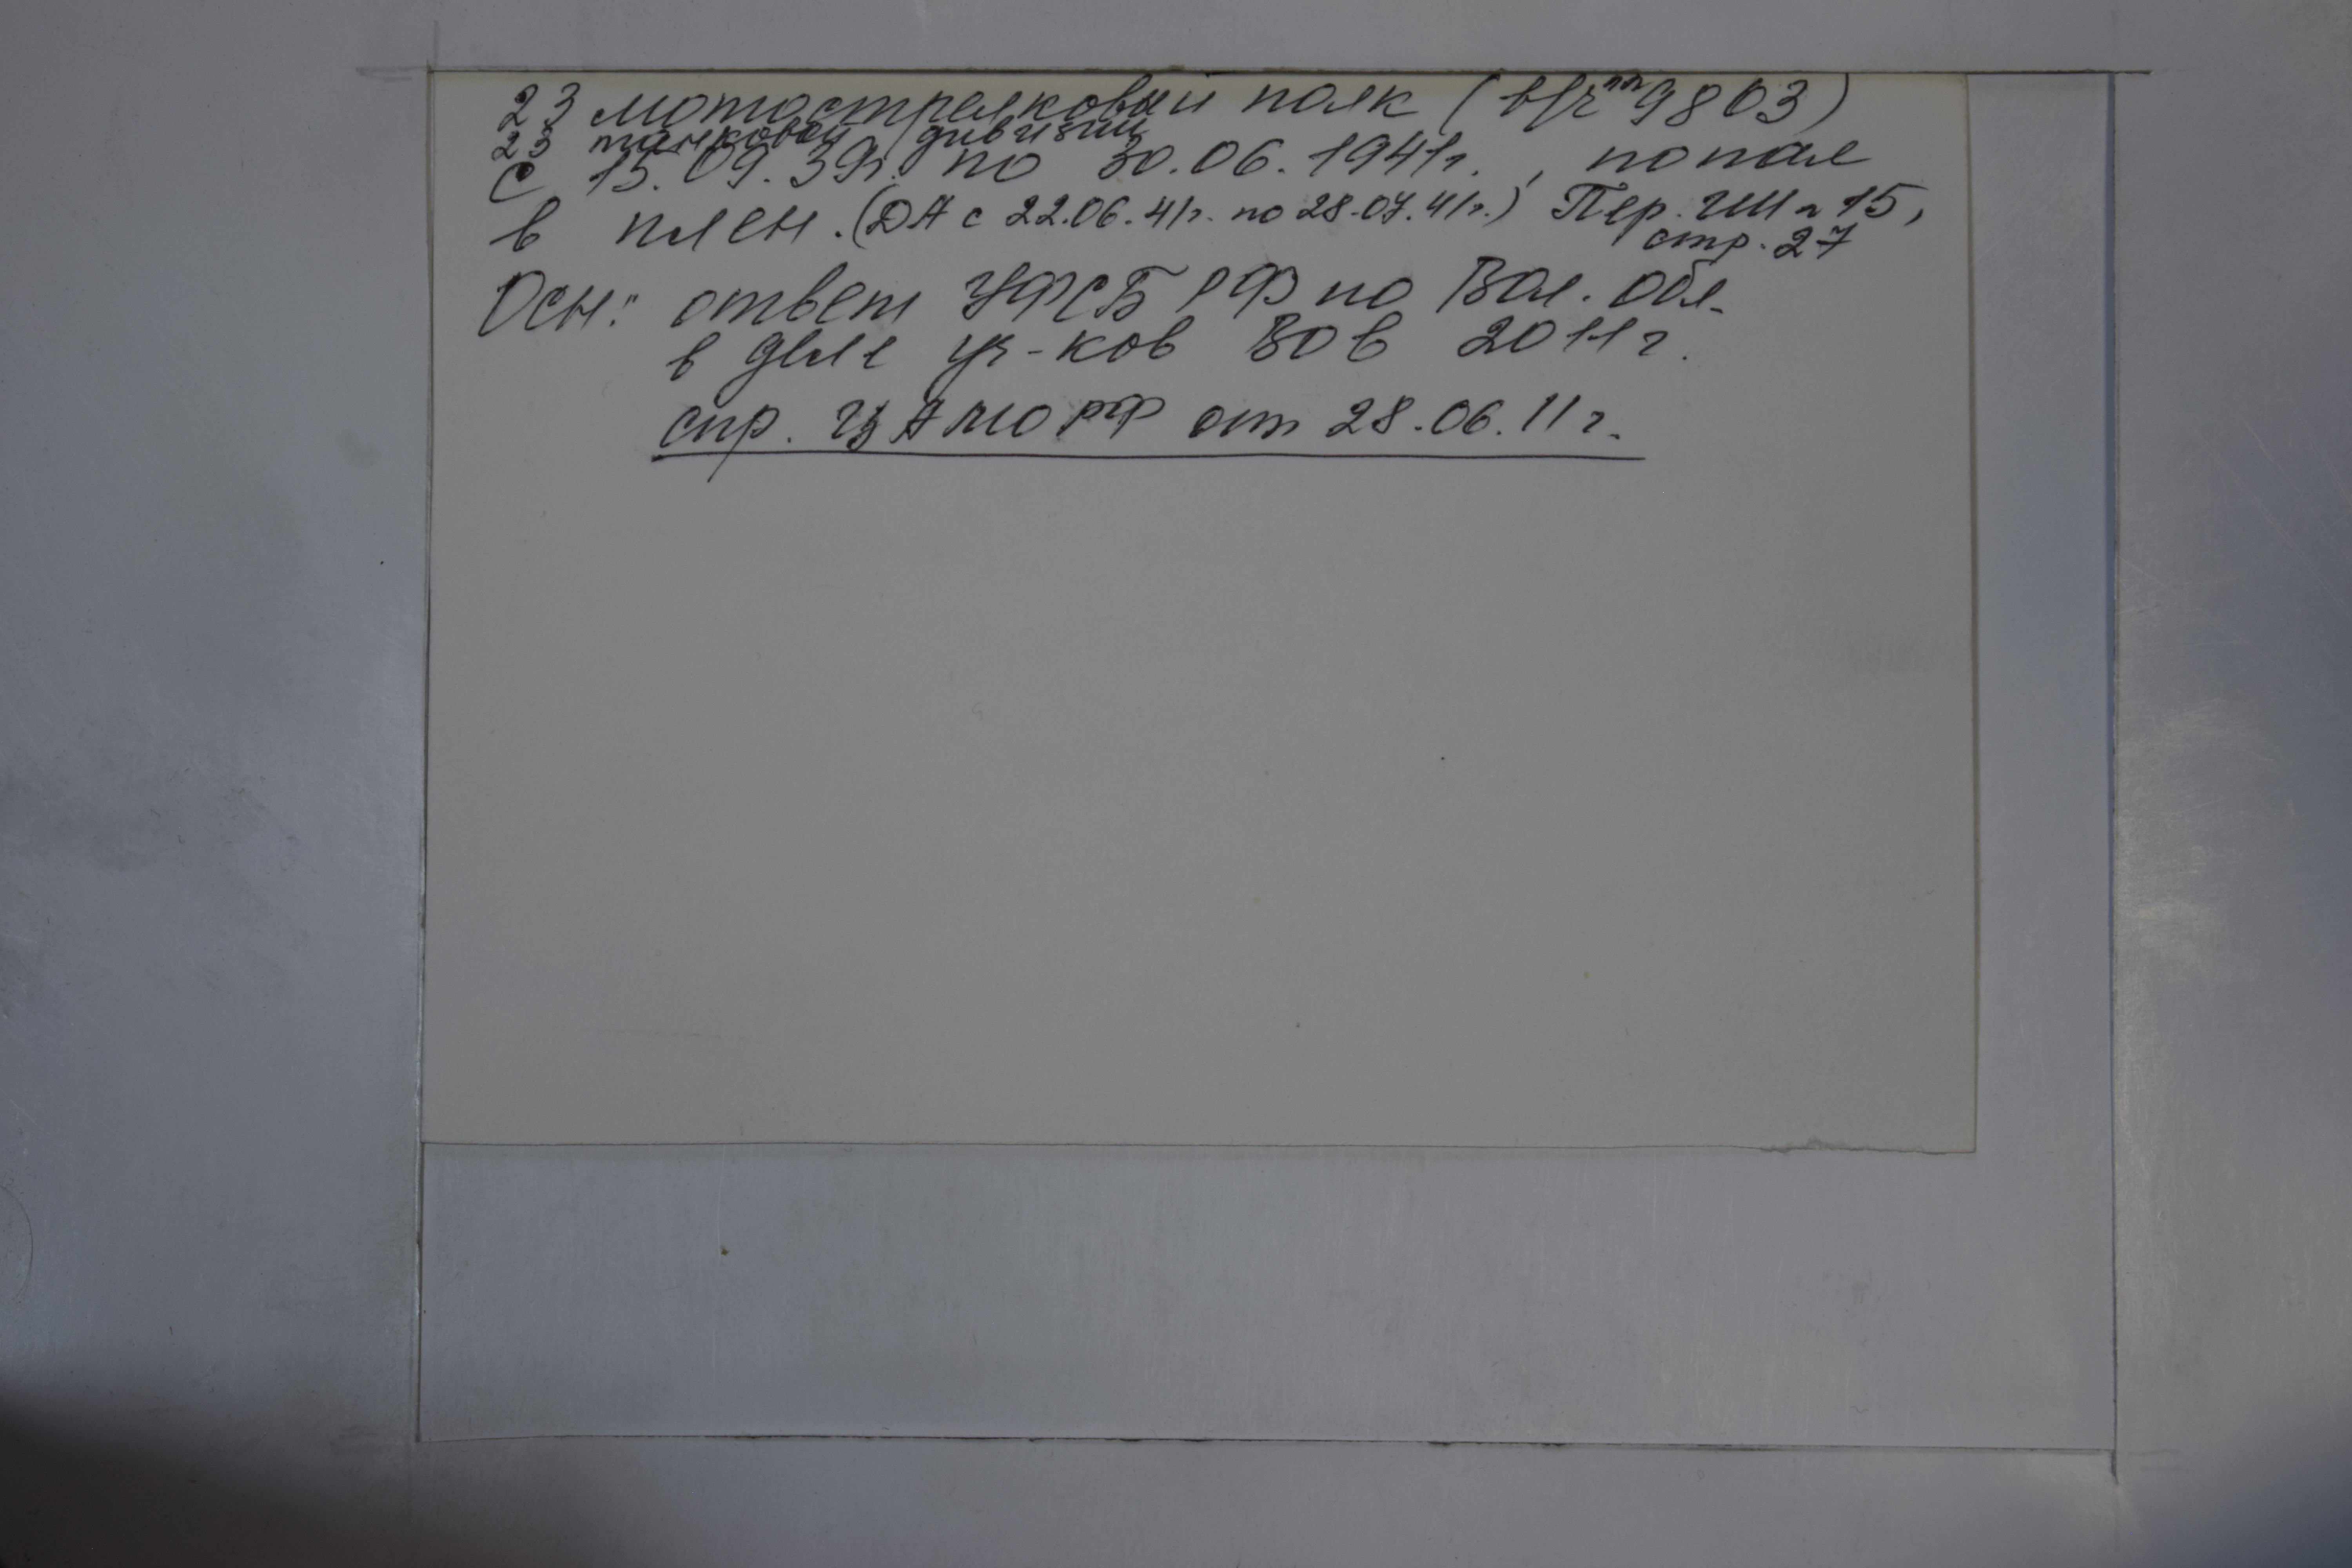 23 мотострелковый полк (в/ч пп 9803)
23 танковой дивизии
с 15.09.39г. по 30.06.1941г., попал
в плен. (ДА с 22.06.41г. по 28.07.41г.) Пер. ГШ № 15,
стр. 27
Осн: ответ УФСБ РФ по Вол. обл.
в деле уч-ков ВОв 2011г.
спр. ЦАМО РФ от 28.06.11г.